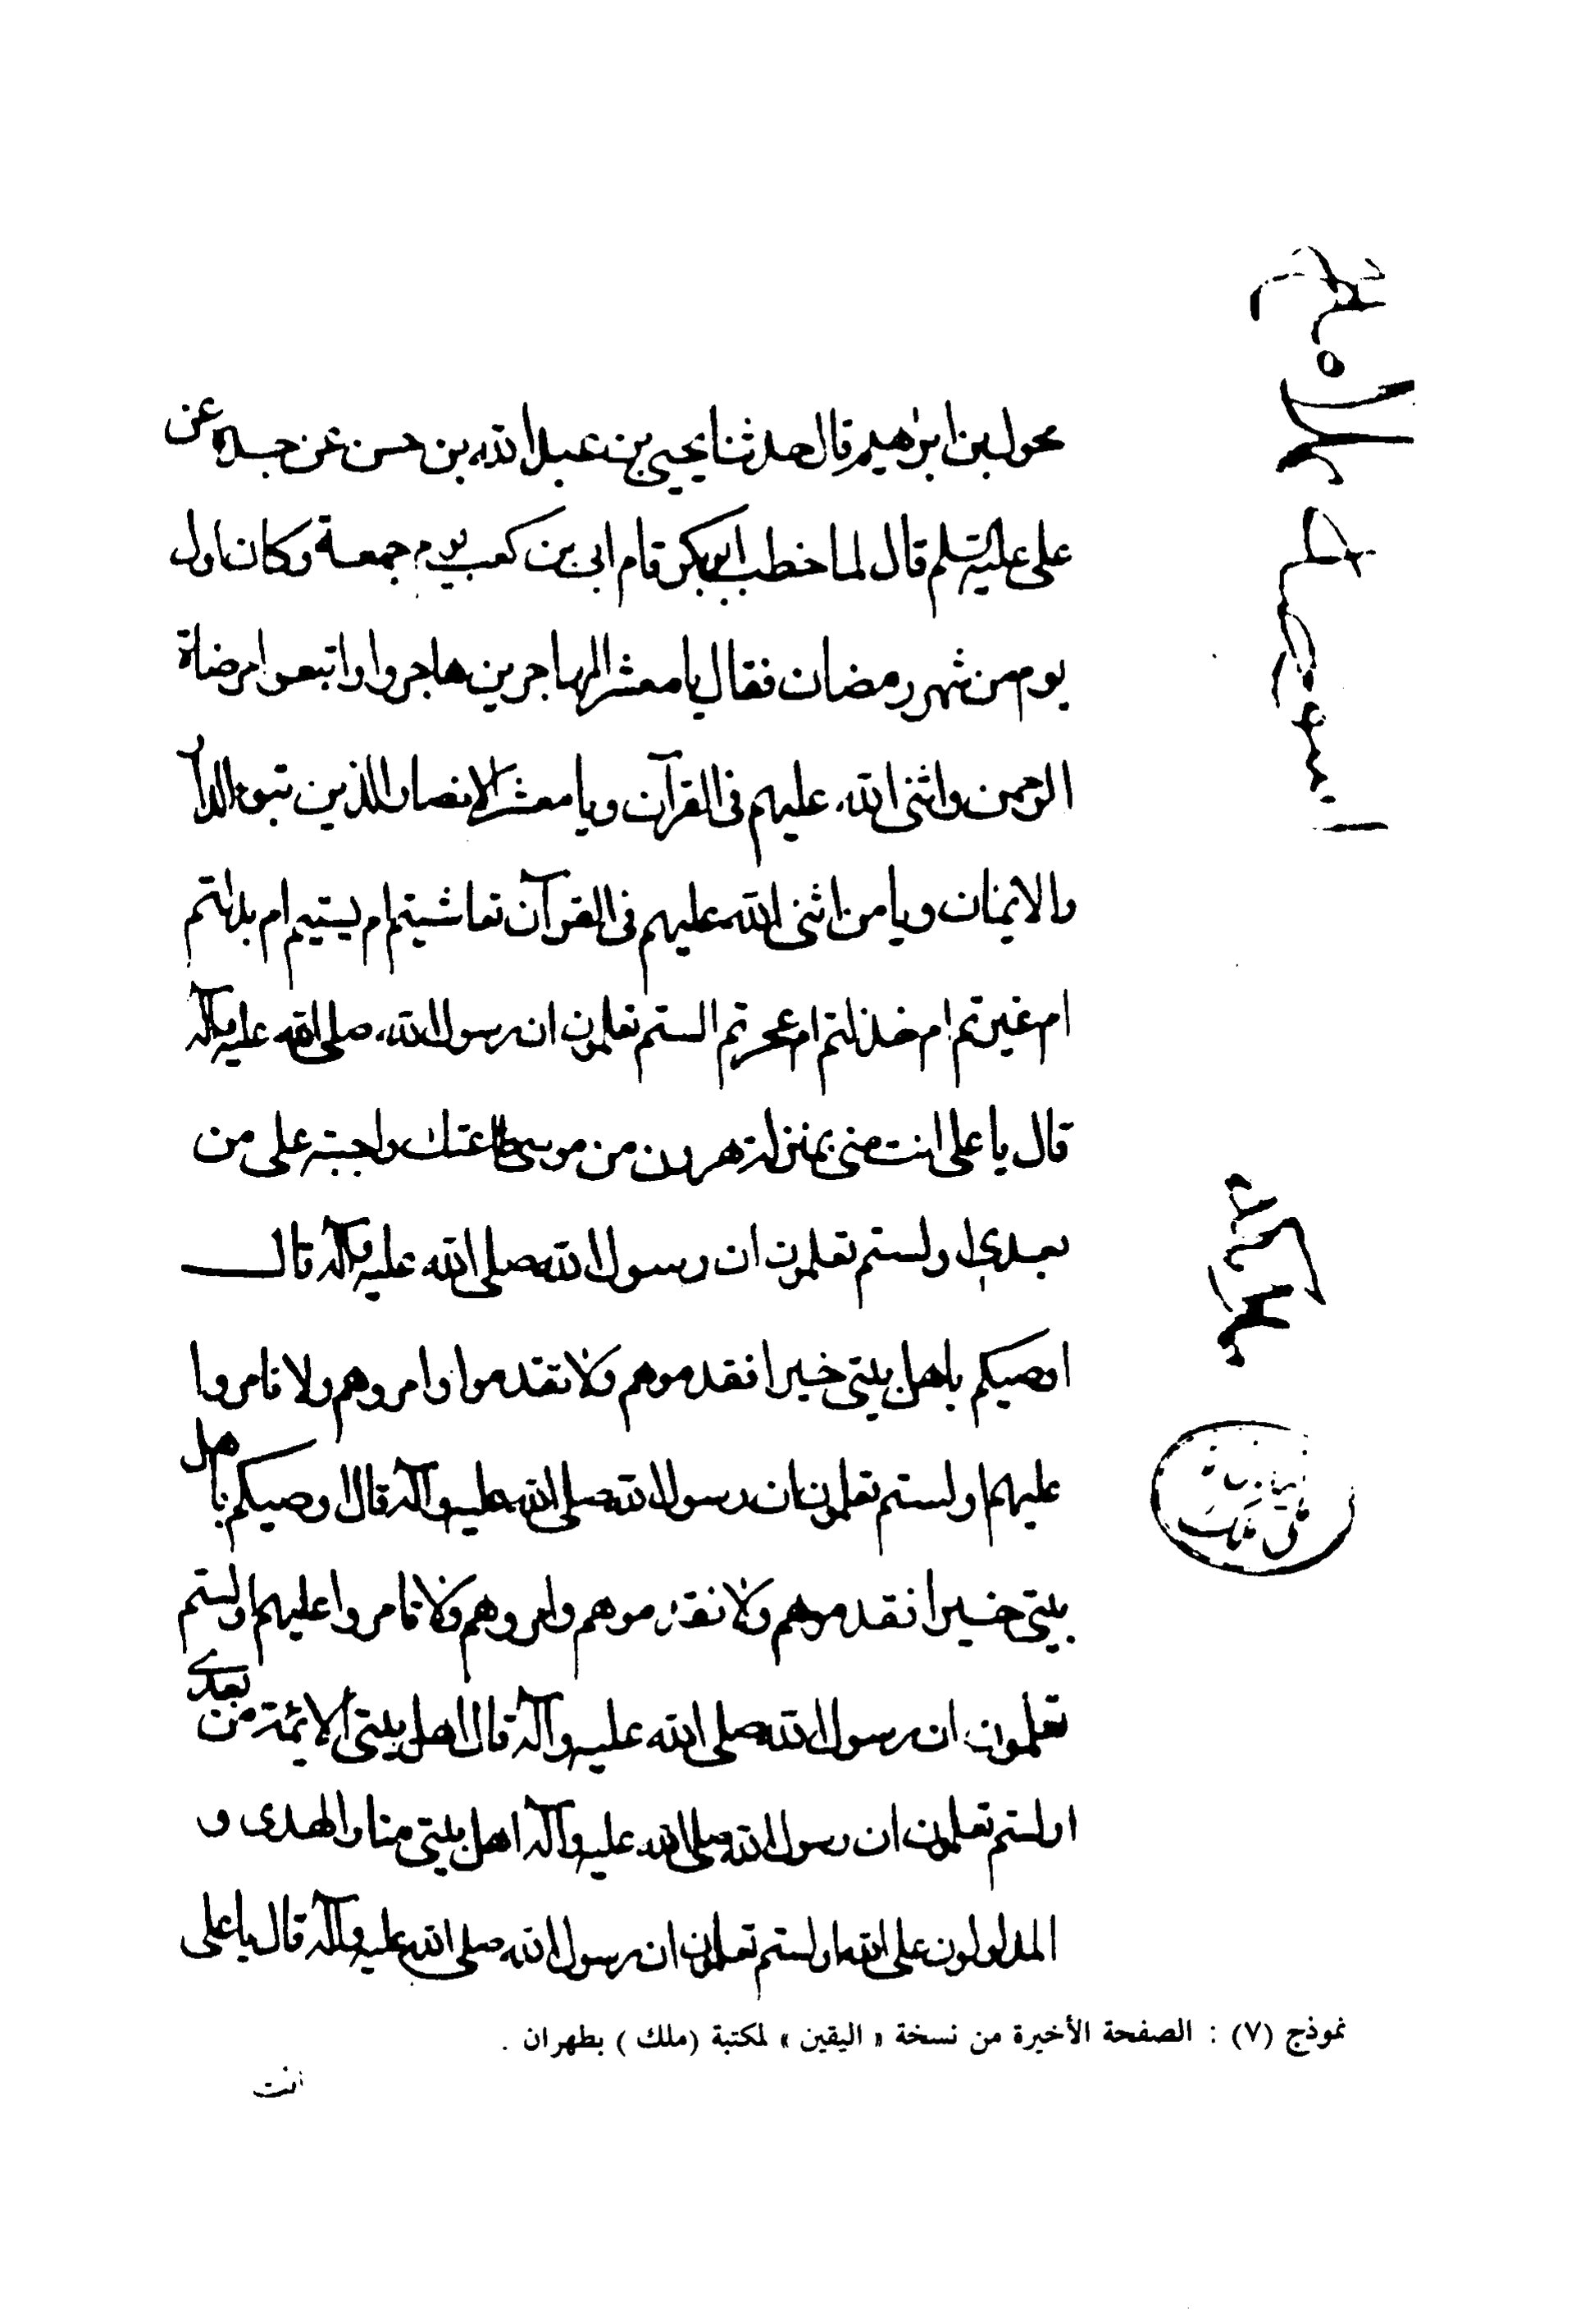 محول بن ابراهيم قال حدثنا يحيى بن عبد الله بن حسن عن جده عن
على عليه السلم قال لما خطب ابو بكر قام ابى بن كعب يوم جمعة وكان اول
يوم من شهر رمضان فقال يا معشر المهاجرين هاجروا واتبعوا مرضاة
الرحمن واثنى الله عليهم فى القرآن ويا معشر الانصار الذين تبوؤا الدار
والايمان ويا من اثنى الله عليهم فى القرآن تناسيتم ام نسيتم ام بدلتم
ام غيرتم ام خذلتم ام عجزتم الستم تعلمون ان رسول الله صلى الله عليه وآله
قال يا على انت منى بمنزلة هرون من موسى طاعتك واجبة على من
بعدى اولستم تعلمون ان رسول الله صلى الله عليه وآله قال
اوصيكم باهل بيتى خيرا فقدموهم ولا تقدموا وامروهم ولا تامروا
عليهم اولستم تعلمون ان رسول الله صلى الله عليه وآله قال اوصيكم باهل
بيتى خيرا فقدموهم ولا تقدموهم وامروهم ولا تامروا عليهم اولستم
تعلمون ان رسول الله صلى الله عليه وآله قال اهل بيتى الائمة من بعدى
اولستم تعلمون ان رسول الله صلى الله عليه وآله اهل بيتى منار الهدى و
المدلولون على الله اولستم تعلمون ان رسول الله صلى الله عليه وآله قال يا على
نموذج (٧) : الصفحة الأخيرة من نسخة « اليقين » لمكتبة (ملك ) بطهران .
انت